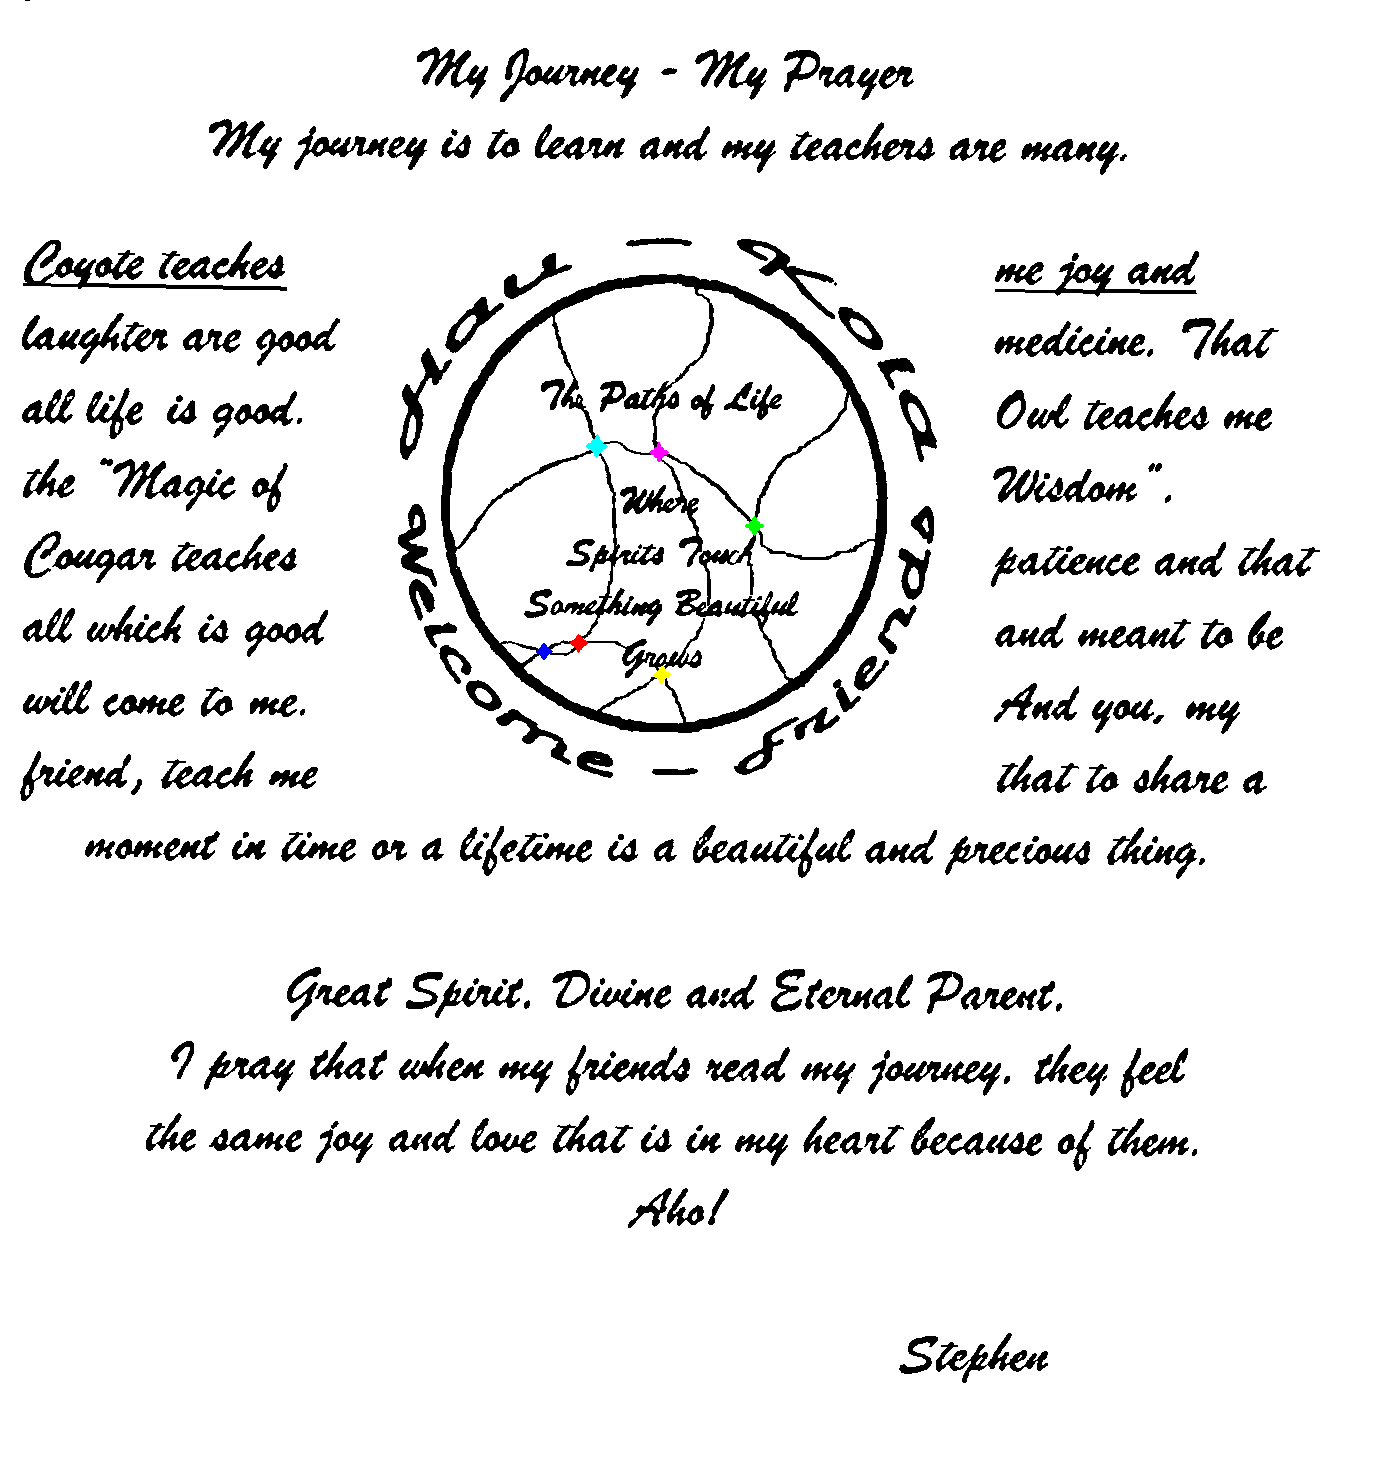 My Journey - My Prayer
My journey is to learn and my teachers are many.
Coyote teaches me joy and
laughter are good medicine. That
all life is good. Owl teaches me
the "Magic of Wisdom".
Cougar teaches patience and that
all which is good and meant to be
will come to me. And you, my
friend, teach me that to share a
moment in time or a lifetime is a beautiful and precious thing.
Hau - Kola
The Paths of Life
Where
Spirits Touch
Something Beautiful
Grows
welcome - friends
Great Spirit. Divine and Eternal Parent.
I pray that when my friends read my journey. they feel
the same joy and love that is in my heart because of them.
Aho!
Stephen